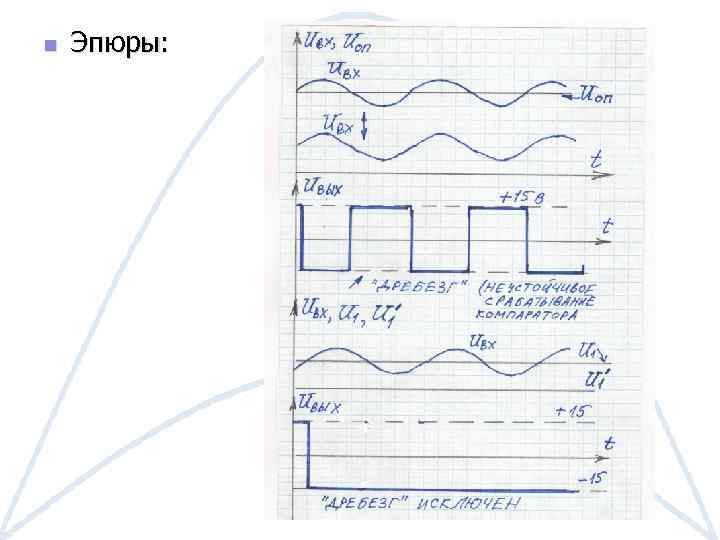 Эпюры:
Uвх, Uоп
Uвх
Uоп
Uвх
t
Uвых
+15 В
t
"ДРЕБЕЗГ" (НЕУСТОЙЧИВОЕ
СРАБАТЫВАНИЕ
КОМПАРАТОРА
Uвх, U1, U1'
Uвх
U1
U1'
Uвых
+15
t
-15
"ДРЕБЕЗГ" ИСКЛЮЧЕН